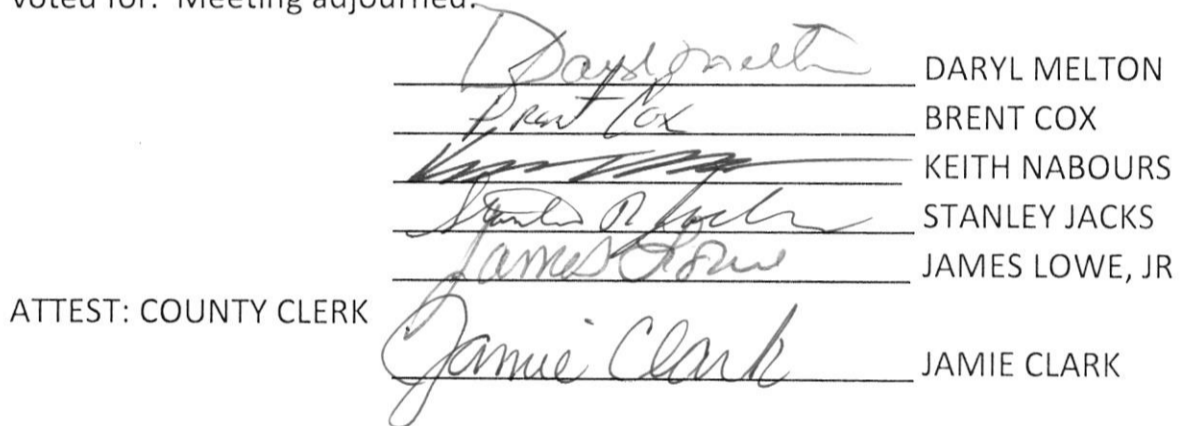 voted for. Meeting adjourned.
Daryl Melton DARYL MELTON
Brent Cox BRENT COX
KEITH NABOURS
Stanley R Jacks STANLEY JACKS
James Lowe JAMES LOWE, JR
ATTEST: COUNTY CLERK
Jamie Clark JAMIE CLARK